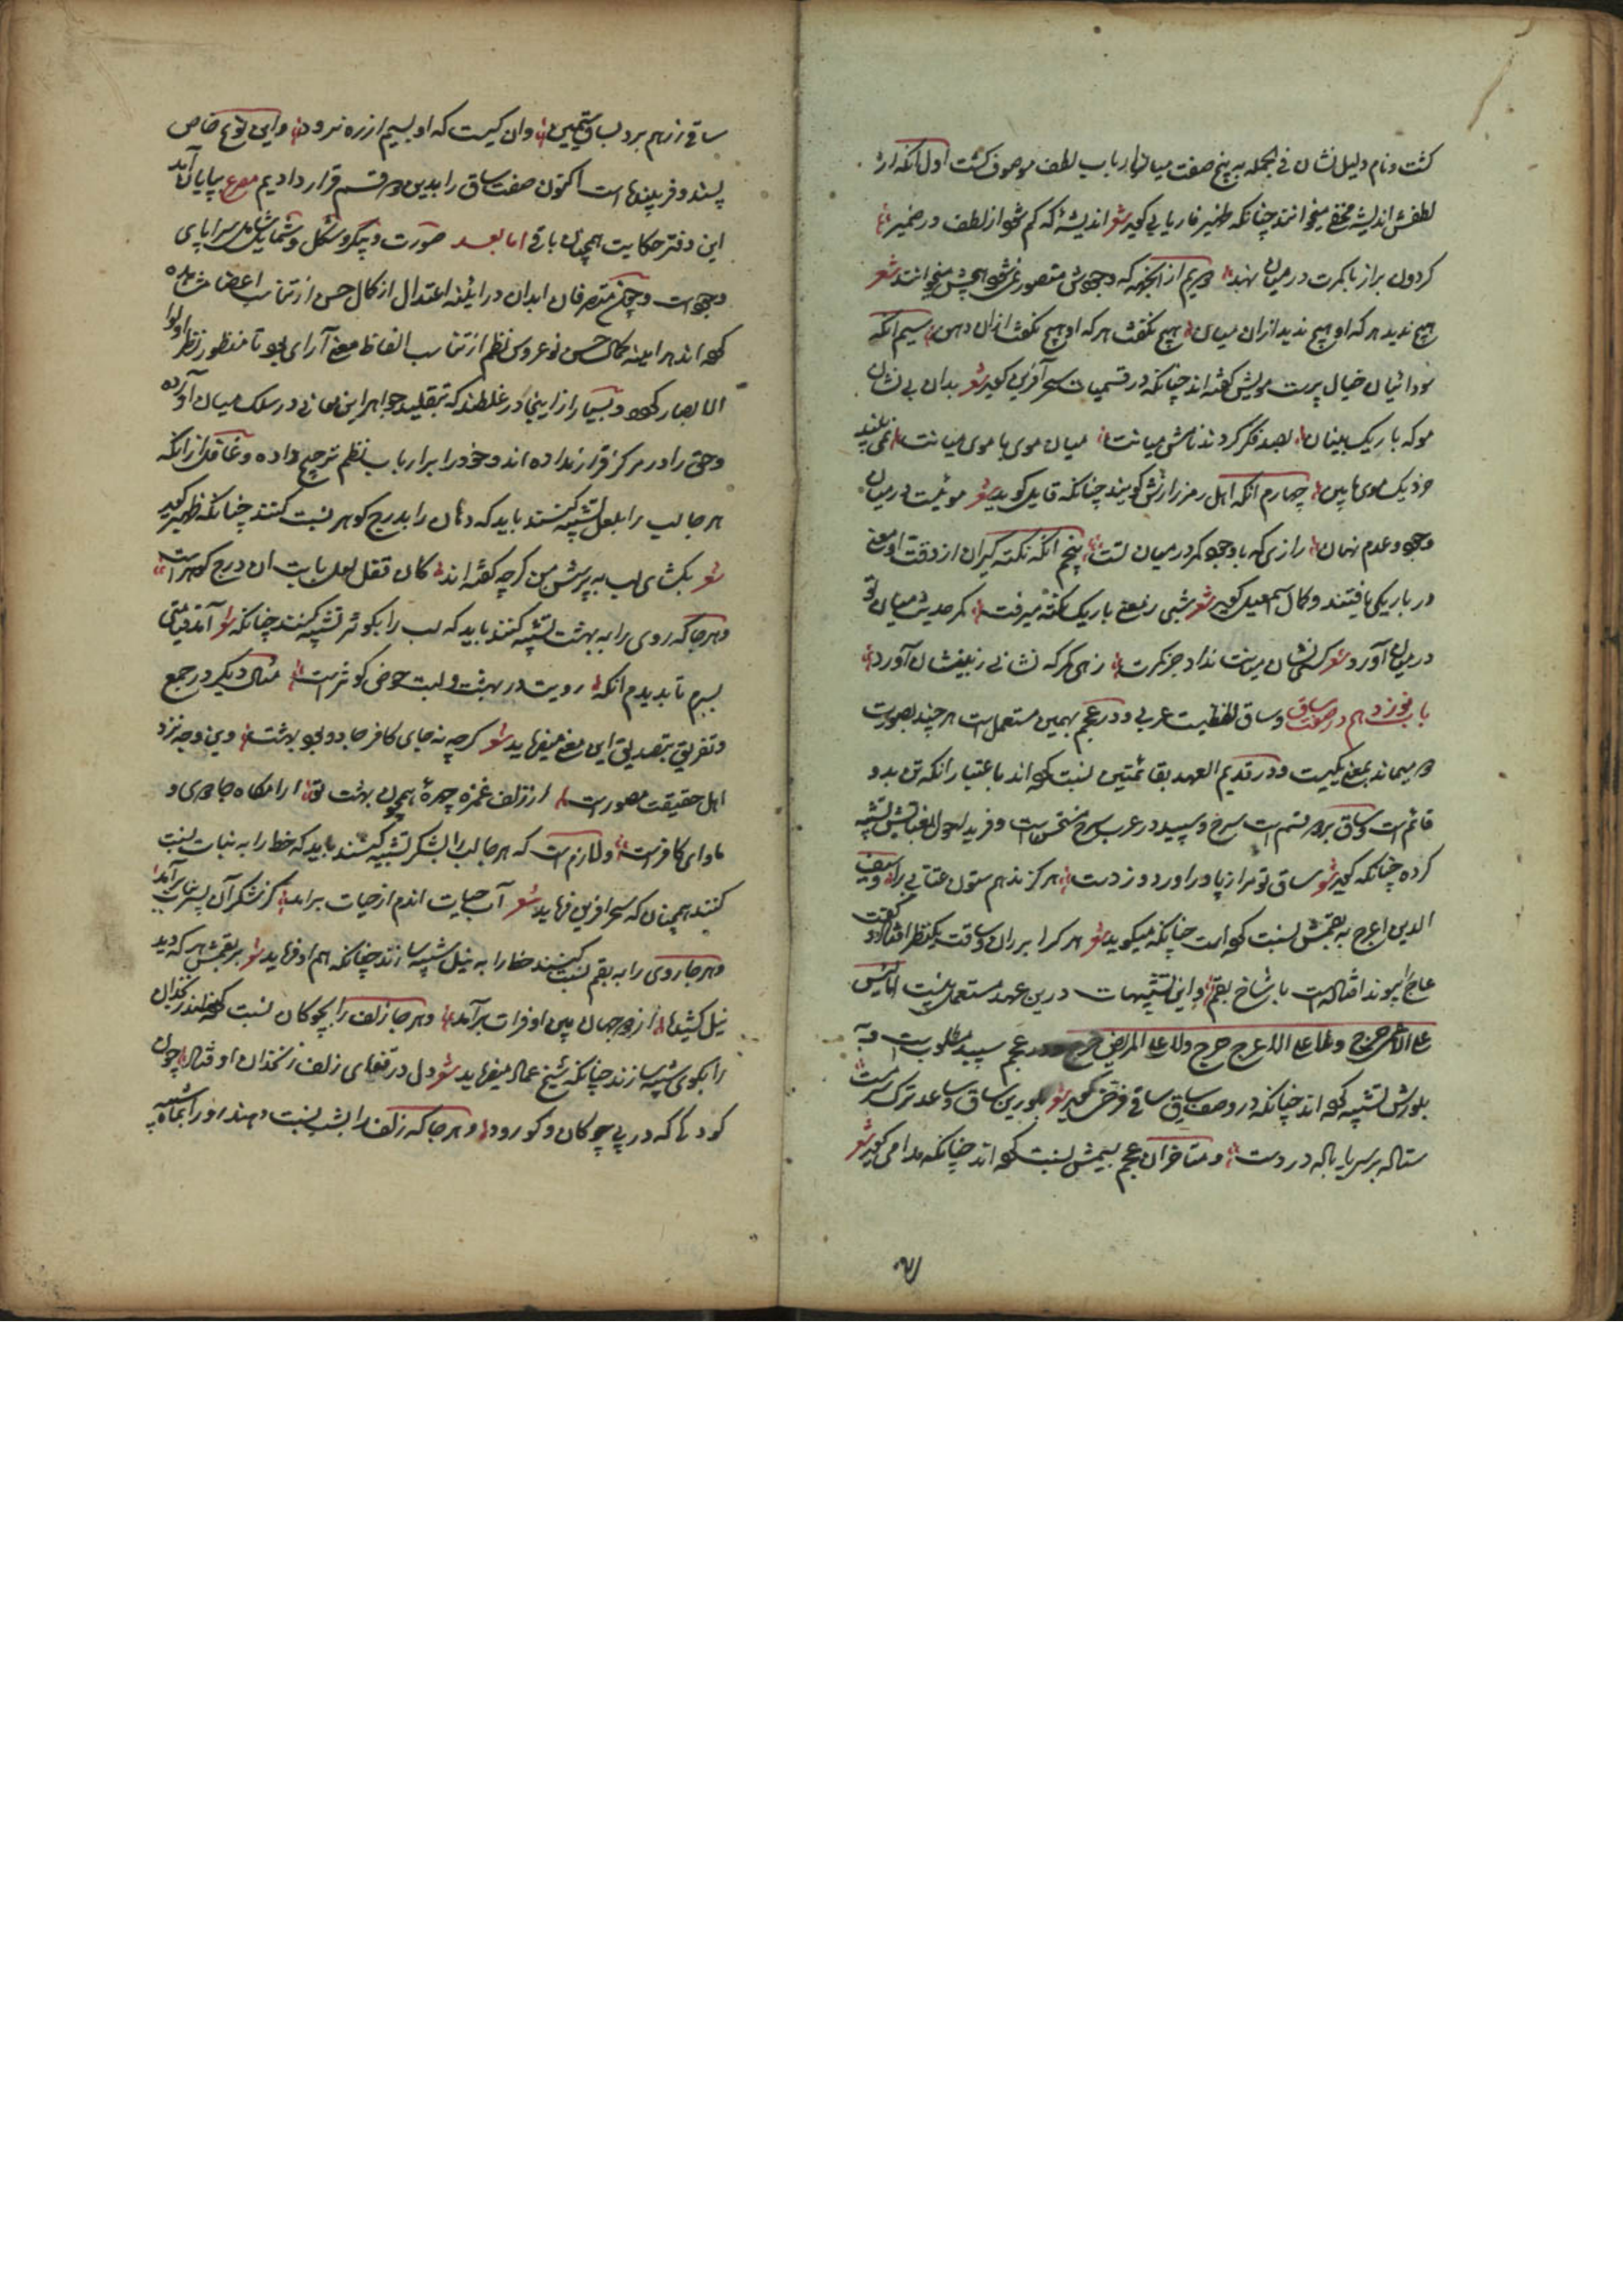 کشت و نام دلیل نشان فی الجمله به پنج صفت میان ارباب لطف موصوف کشت اول انکه از
لطفش اندیشه مخفی میخوانند چنانکه ظهیر فاریابی کوید شعر اندیشهٔ که کم شود از لطف در ضمیر
کردون براز با کمرت در میان نهد دویم از انجهه که وجودش متصور نمیشود هیچش میخوانند شعر
هیچ ندید هر که او هیچ ندید ازان میان هیچ نکفت هر که او هیچ نکفت ازان دهن سیم انکه
سودائیان خیال پرست مویش کفته اند چنانکه در قسمیات سحر آفرین کوید شعر بدان بی نشان
مو که باریک بینان بصد فکر کردند نامش میانت میان موی با موی میانت نمی بیند
خرد یک موی مابین چهارم انکه اهل رمز رازش کویند چنانکه قایل کوید شعر موئیست در میان
وجود و عدم نهان رازی که با وجود کمر در میان تست پنجم انکه نکته کیران از دقت او معنی
در باریکی یافتند و کمال اسمعیل کوید شعر شبی ز معنی باریک نکته میرفت مکر حدیث میان تو
در میان آورد شعر کسی نشان میانت نداد جز کمرت زهی کمر که نشانی ز بی نشان آورد
باب نوزدهم در صفت ساق و ساق لفظیست عربی و در عجم بهمین مستعمل است هر چند بصورت
دو میماند بمعنی یکیست و در قدیم العهد بقائمتین نسبت کرده اند باعتبار انکه تن بدو
قائم است و ساق بر دو قسم است سرخ و سپید در عرب سرخ مستحسن است و فرید احول بعنابیش تشبیه
کرده چنانکه کوید شعر ساق تو مرا ز پا دراورد و ز دست هرکز ندهم ستون عنابی را و سیف
الدین اعرج به بقمش نسبت کرده است چنانکه میکوید شعر هر کرا بر ران و ساقت یکنظر افتاد کفت
عاج را پیوند افتادست با شاخ بقم و این تشبیهات درین عهد مستعمل نیست اما لیس
علی الاعمی حرج و لا علی الاعرج حرج و لا علی المریض حرج و در عجم سپید مطلوبست و به
بلورش تشبیه کرده اند چنانکه در وصف ساق ساقی فرخی کوید شعر بلورین ساق و ساعد ترک سرمست
ستاده بر سر پا باده در دست و متاخران عجم بسیمش نسبت کرده اند چنانکه مدامی کوید شعر
ساقی ز رهم برد بساق سیمین وان کیست که او بسیم از ره نرود و این نوع خاص
پسند و فریبنده است اکنون صفت ساق را بدین دو قسم قرار دادیم مصرع بپایان آمد
این دفتر حکایت همچنان باقی اما بعد صورت و پیکر و شکل و شمایل شامل سراپای
وجودست و چون متصرفان ابدان در آئینه اعتدال از کمال حسن از تناسب اعضا مشاهده
کرده اند هر اینه جمال حسن نو عروس نظم از تناسب الفاظ معنی آرای بود تا منظور نظر اولوا
الابصار کردد و بسیار ازاینها در غلطند که بتقلید جواهر این معانی در سلک میان آورده
و حق را در مرکز قرار نداده اند و خود را بر ارباب نظم ترجیح داده و غافل از انکه
هر جا لب را بلعل تشبیه کنند باید که دهان را بدرج کوهر نسبت کنند چنانکه ظهیر کوید
شعر بکشای لب به پرسش من کرچه کفته اند کان قفل لعل بابت ان درج کوهرست
و هر جا که روی را به بهشت تشبیه کنند باید که لب را بکوثر تشبیه کنند چنانکه شعر آمد قیامتی
بسرم تا بدیدم انکه رویت در بهشت و لبت حوض کوثرست مثال دیکر در جمع
و تفریق بتصدیق این معنی میفرماید شعر کرچه نه جای کافر جادو بود بهشت وین وجه نزد
اهل حقیقت مصورست از زلف غمزه چهرهٔ همچون بهشت تو ارامکاه جادوی و
ماوای کافرست و لازم است که هر جا لب را بشکر تشبیه کنند باید که خط را به نبات نسبت
کنند همچنان که سحر افرین فرماید شعر آب حیات اندم از حیات براید کز شکر آن پسر نبات برآمد
و هر جا روی را به بقم نسبت کنند خط را به نیل تشبیه سازند چنانکه هم او فرماید شعر بر بقمش هر که دید
نیل کشیده از دو جهان پس او فرات برآمد و هر جا زلف را بچوکان نسبت کرده اند زنخدان
را بکوی تشبیه سازند چنانکه شیخ عماد میفرماید شعر دل در قفای زلف زنخدان او فتاد چون
کودکی که در پی چوکان و کو رود و هر جا که زلف را بشب نسبت دهند رو را بماه تشبیه